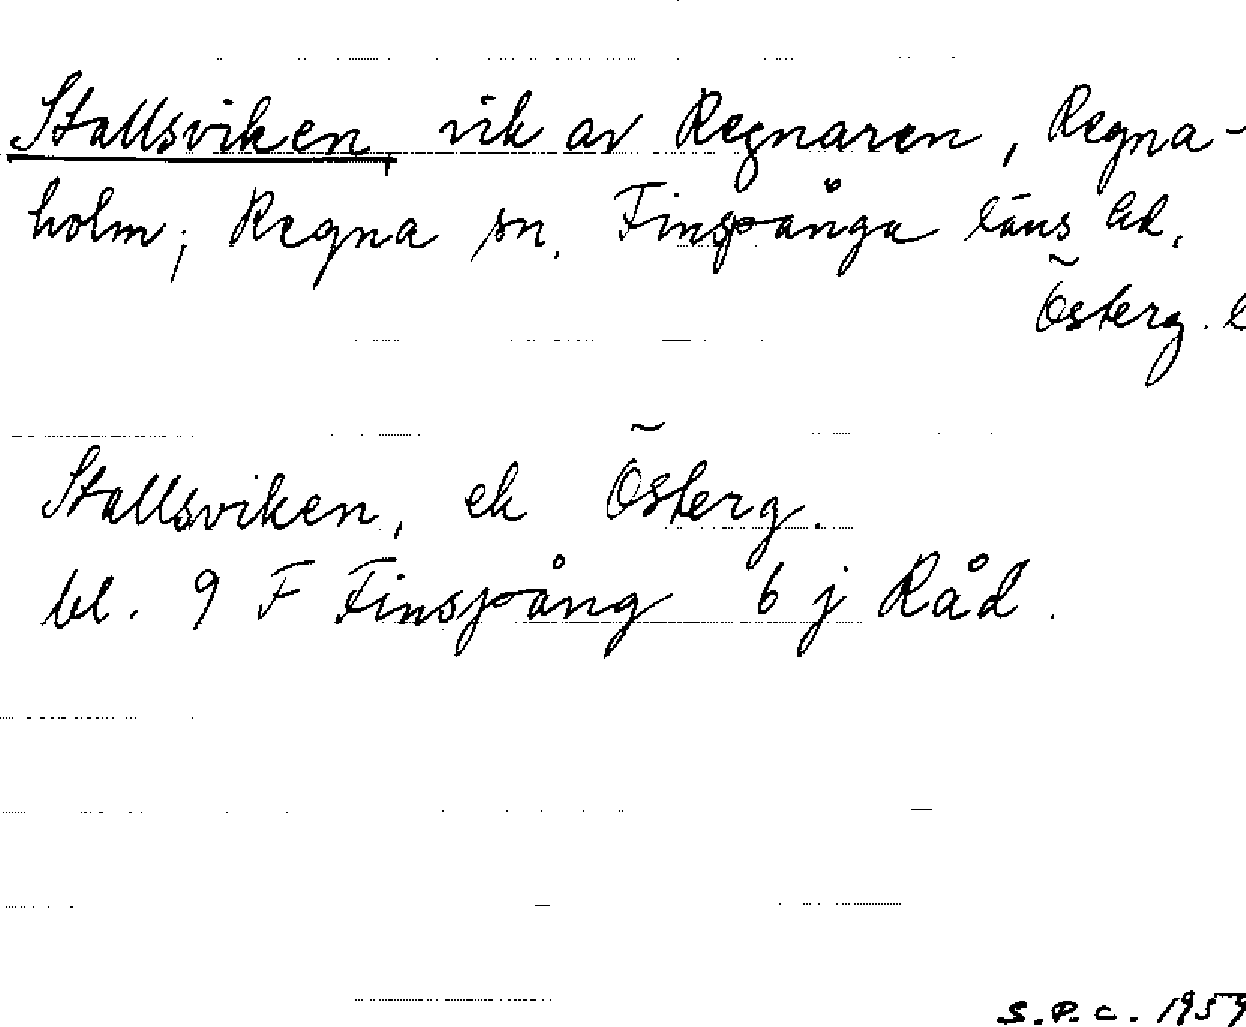 Stallsviken, vik av Regnaren, Regna-
holm, Regna sn. Finspånga läns hd.
Österg. l
Stallsviken, ek Österg.
bl. 9 F Finspång 6 j Råd.
S.P.C. 1959